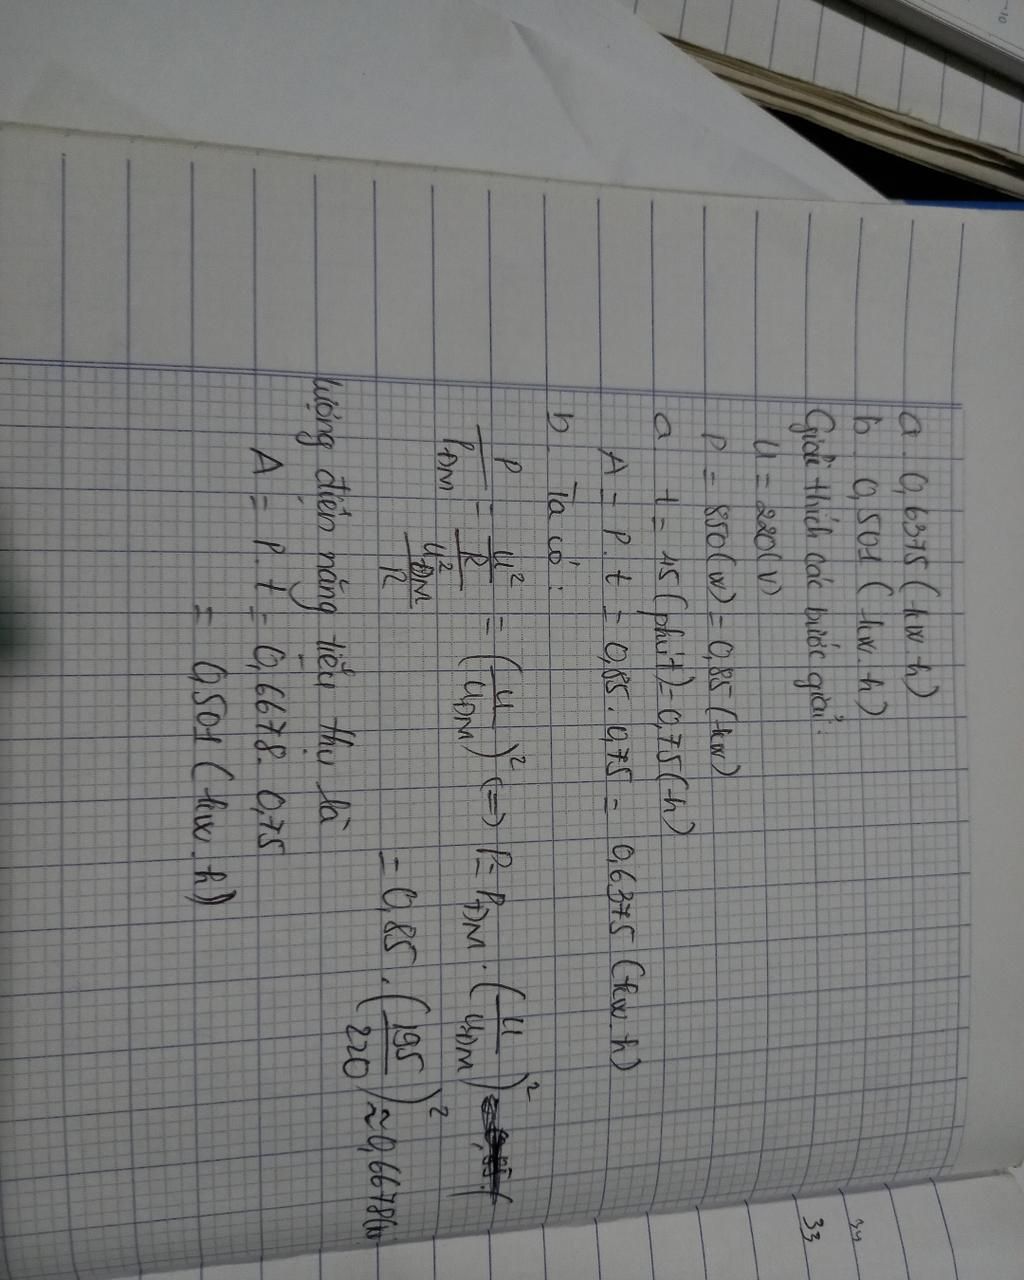 a. 0,6375 (kw.h)
b. 0,501 (kw.h)
Giải thích các bước giải:
U = 220(V)
P = 850(w) = 0,85 (kw)
a t = 45 (phút) = 0,75 (h)
A = P.t = 0,85.0,75 = 0,6375 (kw.h)
b. Ta có:
P/PĐM = (U²/R)/(U²ĐM/R) = (U/UĐM)² <=> P = PĐM.(U/UĐM)²
= 0,85.(195/220)² ≈ 0,6678(
lượng điện năng tiêu thụ là
A = P.t = 0,6678.0,75
= 0,501 (kw.h)
33
34